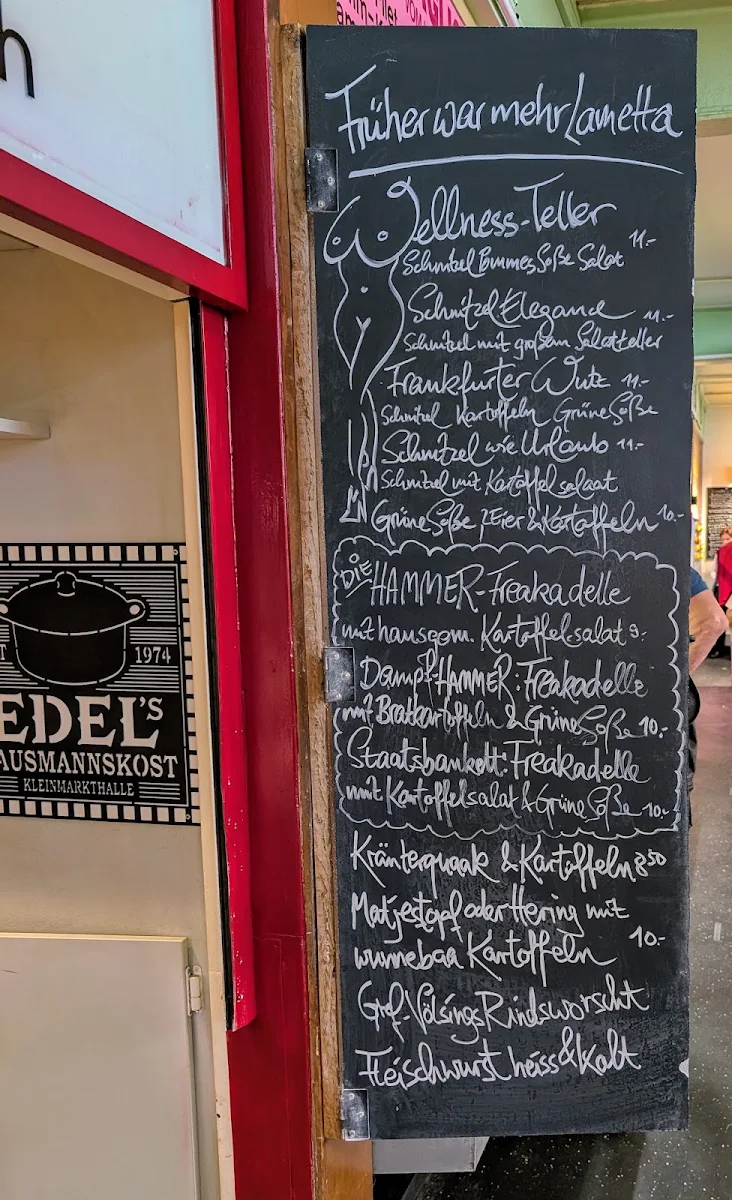 h
Früher war mehr Lametta
Wellness-Teller 11.-
Schnitzel Pommes Soße Salat
Schnitzel Elegance 11.-
Schnitzel mit großem Salatteller
Frankfurter Wutz 11.-
Schnitzel Kartoffeln Grüne Soße
Schnitzel wie Urlaub 11.-
Schnitzel mit Kartoffelsalaat
Grüne Soße 2 Eier & Kartoffeln 10.-
DIE HAMMER-Freakadelle
mit hausgem. Kartoffelsalat 9.-
Dampf HAMMER-Freakadelle
mit Bratkartoffeln & Grüne Soße 10.-
Staatsbankett-Freakadelle
mit Kartoffelsalat & Grüne Soße 10.-
Kräuterquaak & Kartoffeln 8.50
Matjestopf oder Hering mit
wunnebaa Kartoffeln 10.-
Gref-Völsings Rindsworscht
Fleischwurst heiss & Kalt
T 1974
EDEL'S
AUSMANNSKOST
KLEINMARKTHALLE